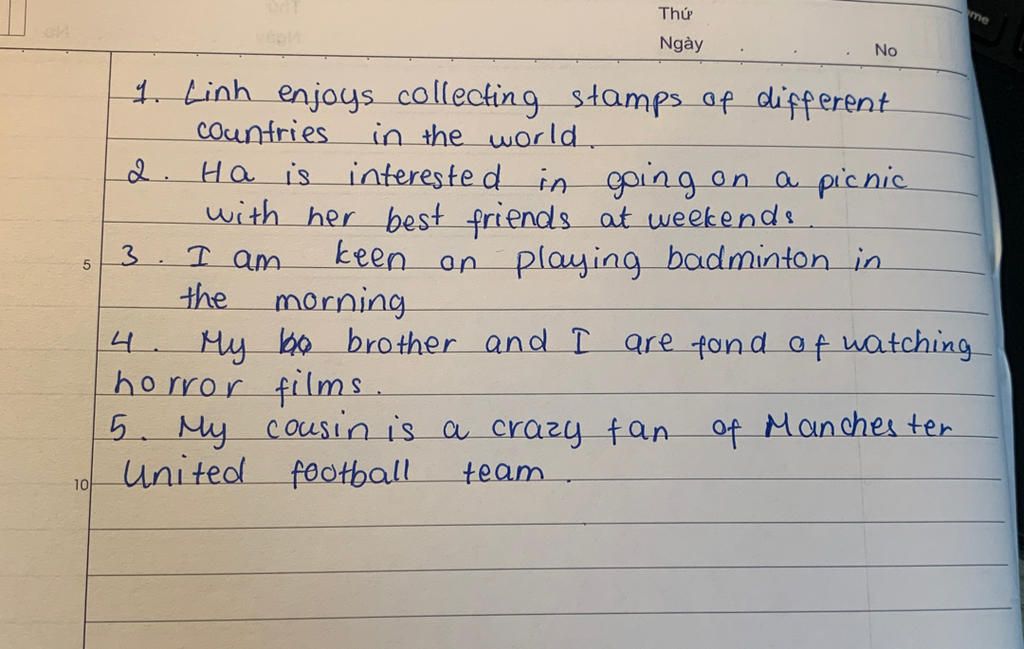 Thứ
Ngày . . . No
1. Linh enjoys collecting stamps of different
countries in the world.
2. Ha is interested in going on a picnic
with her best friends at weekends.
5
3. I am keen on playing badminton in
the morning
4. My brother and I are fond of watching
horror films.
5. My cousin is a crazy fan of Manchester
10
United football team.